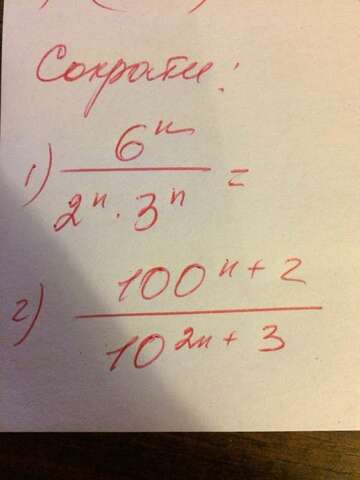 Сократи:
1) 6ⁿ / 2ⁿ · 3ⁿ =
2) 100ⁿ⁺² / 10²ⁿ⁺³